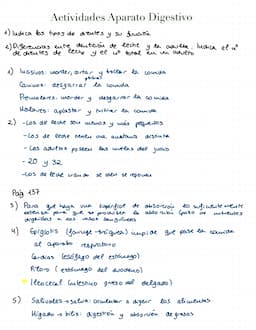 Actividades Aparato Digestivo
1) Indica los tipos de dientes y su función
2) Diferencias entre dentición de leche y la adulta. Indica el nº
de dientes de leche y el nº total en un adulto
1) Incisivos: morder, cortar y trocear la comida
Caninos: desgarrar la comida
Premolares: morder y desgarrar la comida
Molares: aplastar y triturar la comida
2) - Los de leche son menos y más pequeños
- Los de leche tienen una anatomía distinta
- Los adultos poseen las muelas del juicio
- 20 y 32
- Los de leche cuando se caen se reponen
Pág 137
3) Para que haya una superficie de absorción lo suficientemente
extensa para que se produzca la absorción de nutrientes
4) Epiglotis (faringe-tráquea) impide que pase la comida
al aparato respiratorio
Cardias (esófago del estómago)
Píloro (estómago del duodeno)
Ileocecal (intestino grueso del delgado)
5) Salivales → saliva: a digerir los alimentos
Hígado → bilis: digestión y absorción de grasas